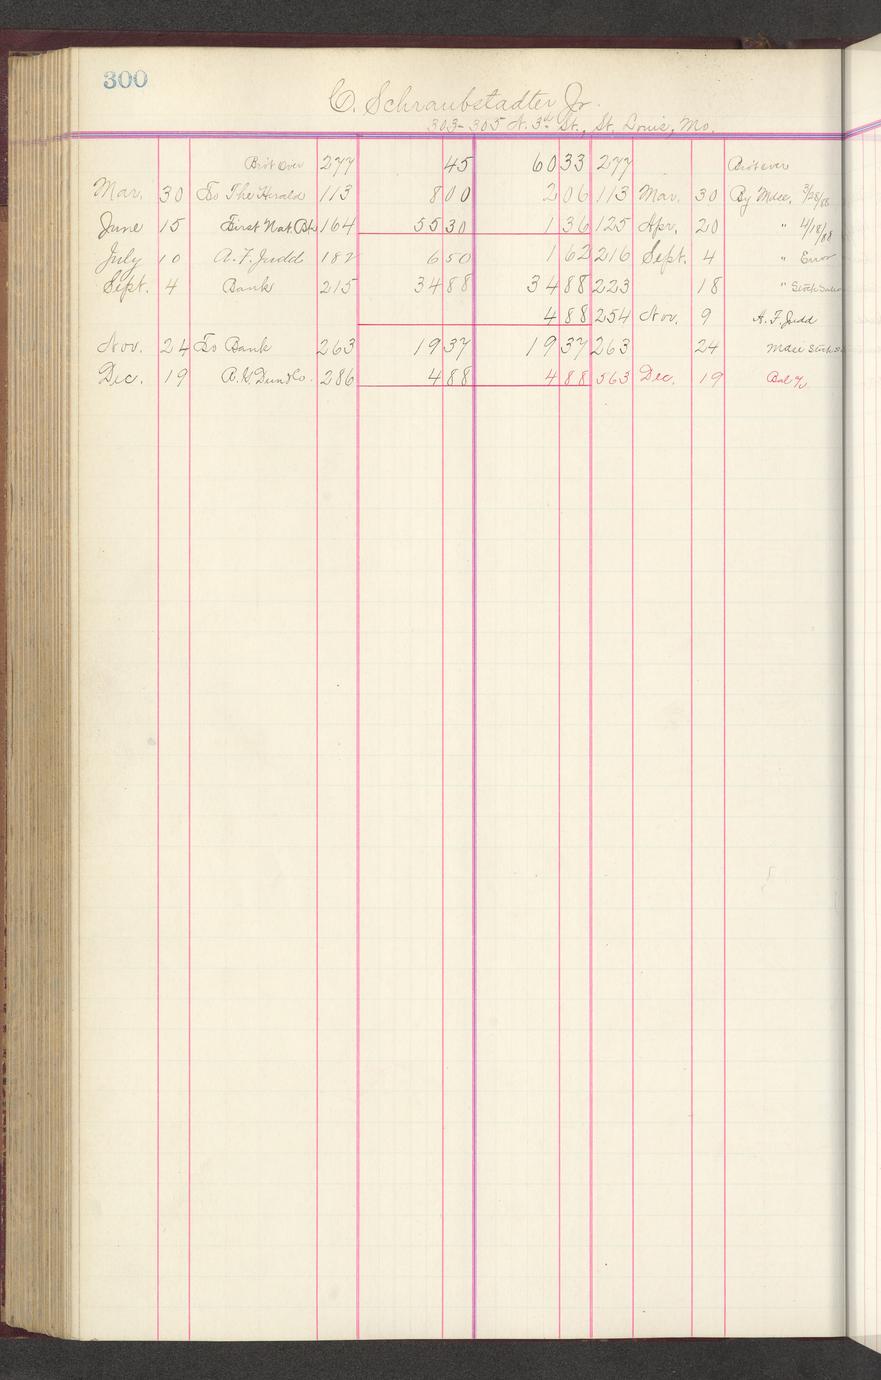 300
C. Schraubstadter Jr.
303-305 N. 3rd St., St. Louis, Mo.
Bro't over 277 45 60 33 277 Bro't over
Mar. 30 To The Herald 113 8 00 2 06 113 Mar. 30 By Mdse, 3/28/88
June 15 First Nat. Bk 164 55 30 1 36 125 Apr. 20 " 4/18/88
July 10 A. F. Judd 187 6 50 1 62 216 Sept. 4 " Error
Sept. 4 Bank 215 34 88 34 88 223 18 " Stock
4 88 254 Nov. 9 A. F. Judd
Nov. 24 To Bank 263 19 37 19 37 263 24 Mdse Stock
Dec. 19 R. G. Dun & Co. 286 4 88 4 88 563 Dec. 19 Bal